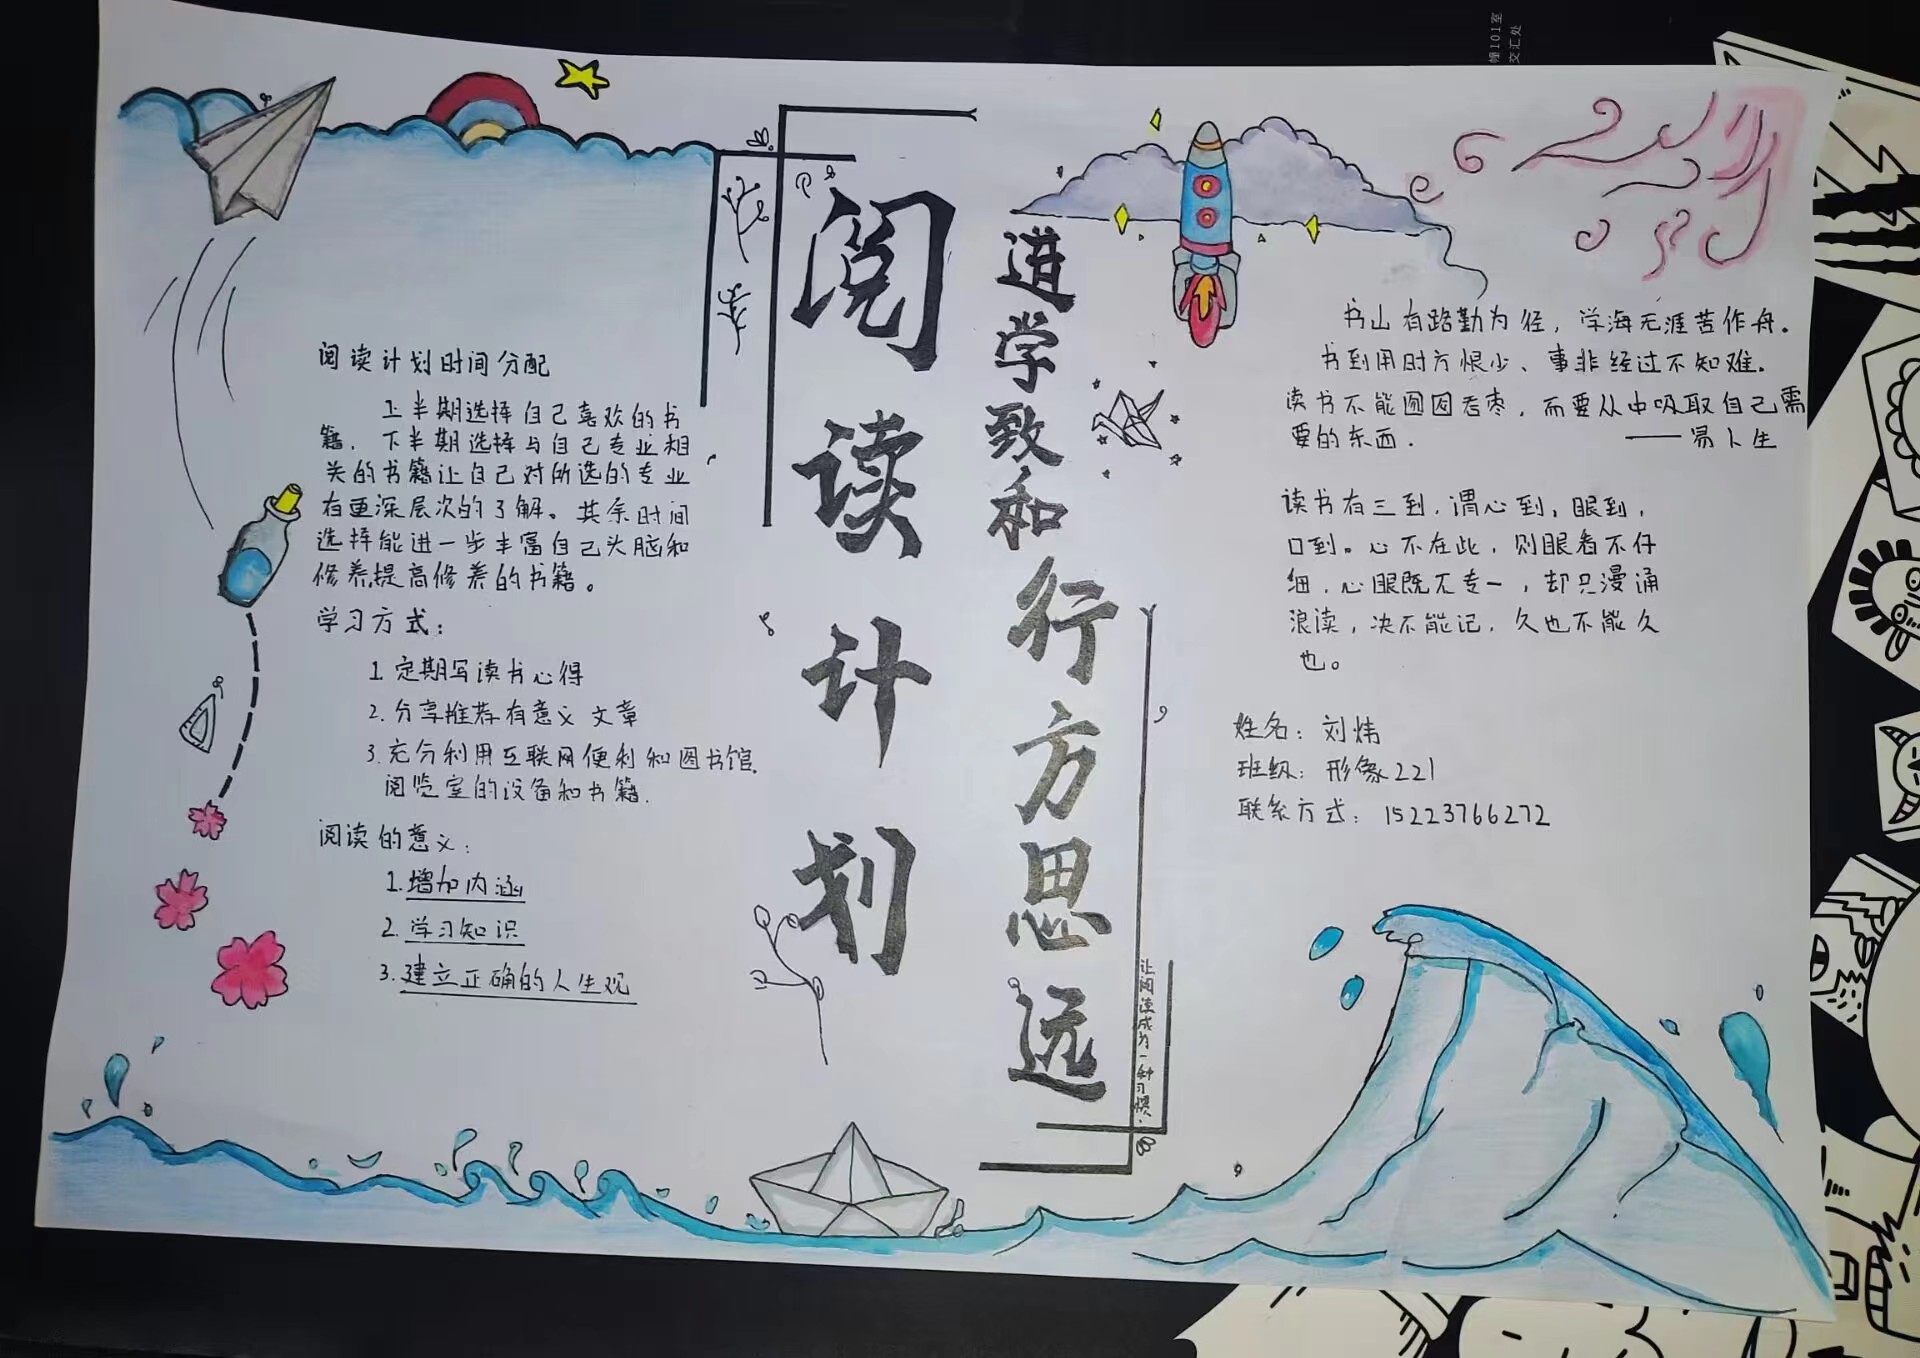 阅读计划
进学致和行方思远
让阅读成为一种习惯
阅读计划时间分配
上半期选择自己喜欢的书
籍，下半期选择与自己专业相
关的书籍让自己对所选的专业
有更深层次的了解。其余时间
选择能进一步丰富自己头脑和
修养,提高修养的书籍。
学习方式：
1.定期写读书心得
2.分享推荐有意义文章
3.充分利用互联网便利和图书馆.
阅览室的设备和书籍.
阅读的意义：
1.增加内涵
2.学习知识
3.建立正确的人生观
书山有路勤为径，学海无涯苦作舟。
书到用时方恨少、事非经过不知难。
读书不能囫囵吞枣，而要从中吸取自己需
要的东西.
——易卜生
读书有三到，谓心到，眼到，
口到。心不在此，则眼看不仔
细，心眼既不专一，却只漫诵
浪读，决不能记，久也不能久
也。
姓名：刘炜
班级：形象221
联系方式：15223766272
幢101室
交汇处